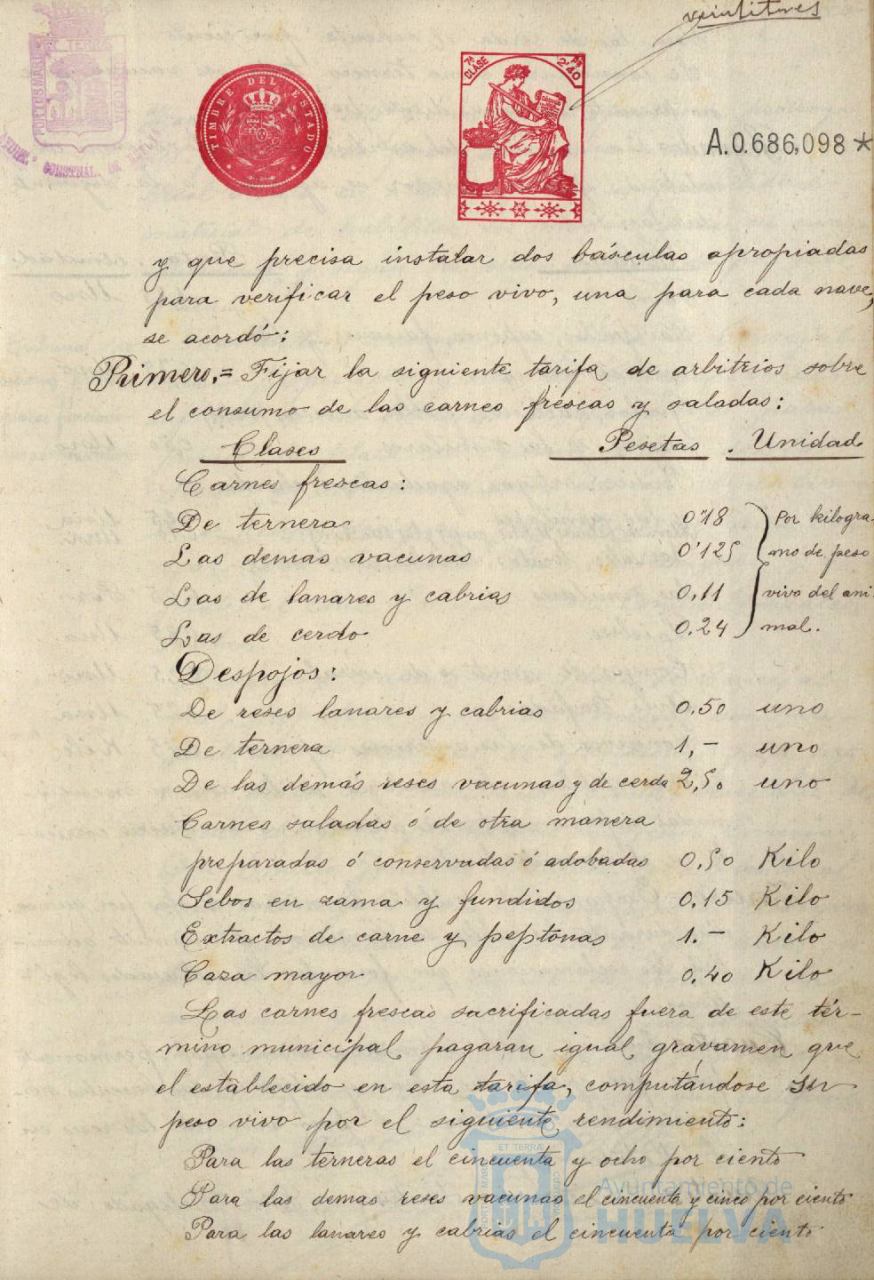 veintitres
TIMBRE DEL ESTADO
7ª CLASE
2'40
A.0.686,098*
y que precisa instalar dos básculas apropiadas
para verificar el peso vivo, una para cada nave,
se acordó:
Primero.= Fijar la siguiente tarifa de arbitrios sobre
el consumo de las carnes frescas y saladas:
Clases Pesetas . Unidad
Carnes frescas:
De ternera 0'18 Por kilogra-
Las demas vacunas 0'125 mo de peso
Las de lanares y cabrias 0,11 vivo del ani-
Las de cerdo 0,24 mal.
Despojos:
De reses lanares y cabrias 0,50 uno
De ternera 1,- uno
De las demás reses vacunas y de cerda 2,50 uno
Carnes saladas ó de otra manera
preparadas ó conservadas ó adobadas 0,50 Kilo
Sebos en rama y fundidos 0,15 Kilo
Extractos de carne y peptonas 1.- Kilo
Caza mayor 0,40 Kilo
Las carnes frescas sacrificadas fuera de este tér-
mino municipal pagaran igual gravamen que
el establecido en esta tarifa, computándose su
peso vivo por el siguiente rendimiento:
Para las terneras el cincuenta y ocho por ciento
Para las demas reses vacunas el cincuenta y cinco por ciento
Para las lanares y cabrias el cincuenta por ciento
Ayuntamiento de
HUELVA